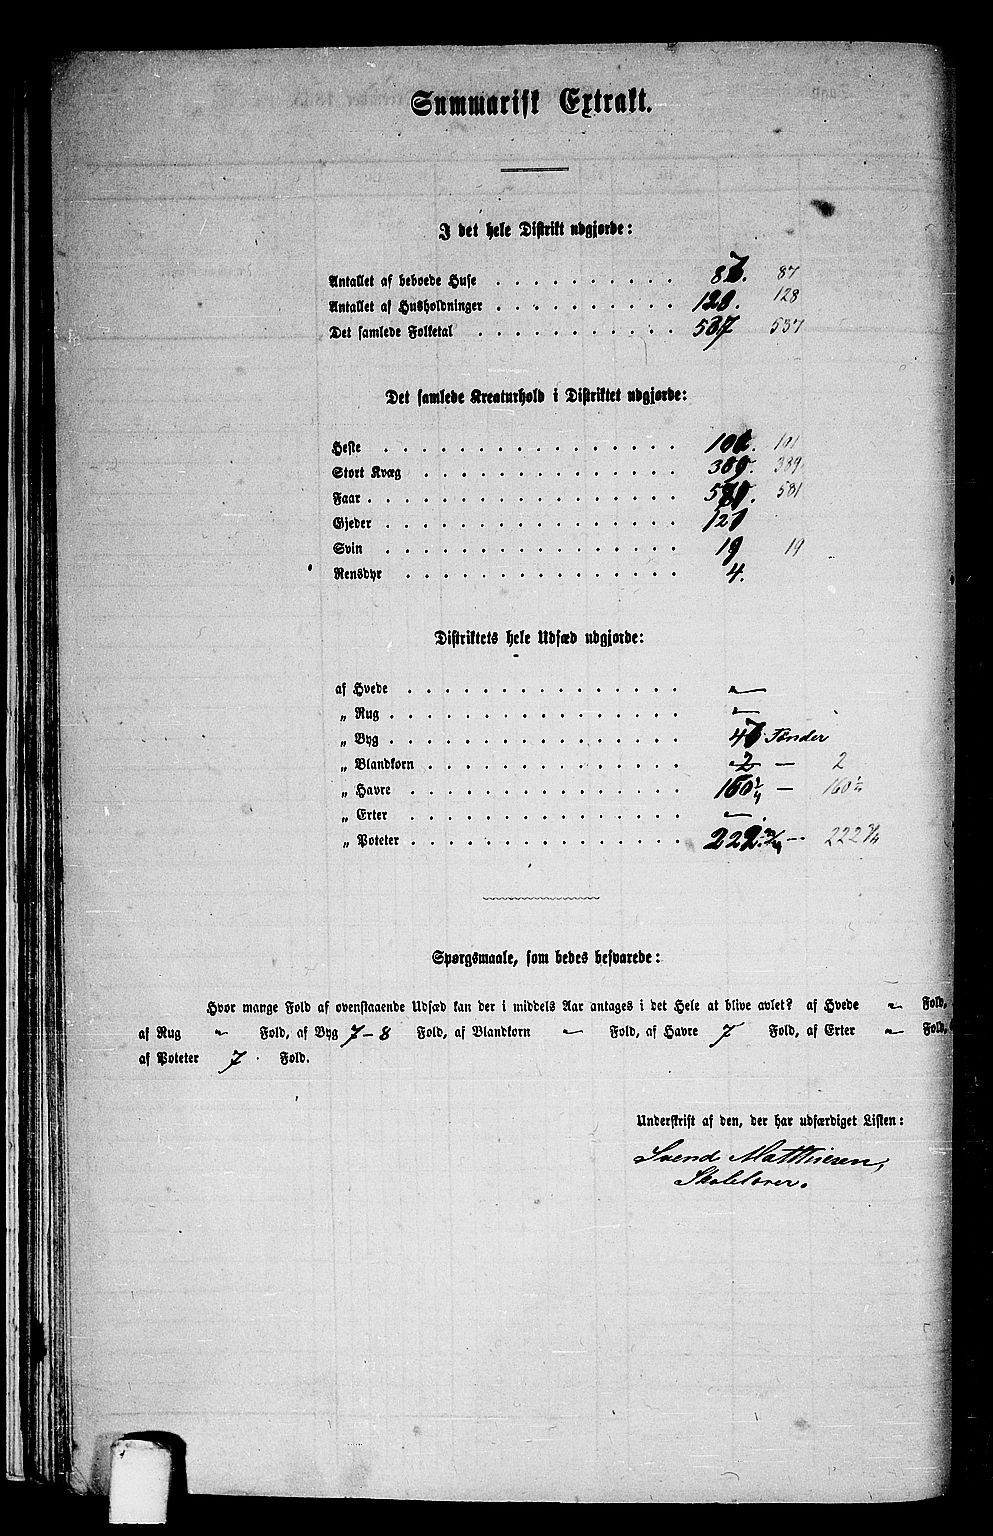 Summarisk Extrakt.
I det hele Distrikt udgjorde:
Antallet af beboede Huse . . . . . . . . 87. 87
Antallet af Husholdninger . . . . . . . . 128. 128
Det samlede Folketal . . . . . . . . . 537 537
Det samlede Kreaturhold i Distriktet udgjorde:
Heste . . . . . . . . . . . . 101. 101
Stort Kvæg . . . . . . . . . . . 389. 389
Faar . . . . . . . . . . . . . 581. 581
Gjeder . . . . . . . . . . . . 121
Svin . . . . . . . . . . . . 19 19
Rensdyr . . . . . . . . . . . 4.
Distriktets hele Udsæd udgjorde:
af Hvede . . . . . . . . . . . „—
„ Rug . . . . . . . . . . . . „—
„ Byg . . . . . . . . . . . . Tønder
„ Blandkorn . . . . . . . . . . 2 — 2
„ Havre . . . . . . . . . . . 160 1/4 — 160 1/4
„ Erter . . . . . . . . . . . „—.
„ Poteter . . . . . . . . . . . 222 3/4 — 222 3/4
Spørgsmaale, som bedes besvarede:
Hvor mange Fold af ovenstaaende Udsæd kan der i middels Aar antages i det Hele at blive avlet? af Hvede „ Fold,
af Rug „ Fold, af Byg 7–8 Fold, af Blandkorn „ Fold, af Havre 7 Fold, af Erter „ Fold,
af Poteter 7 . Fold.
Underskrift af den, der har udfærdiget Listen:
Svend Matthiesen,
Skolelærer.